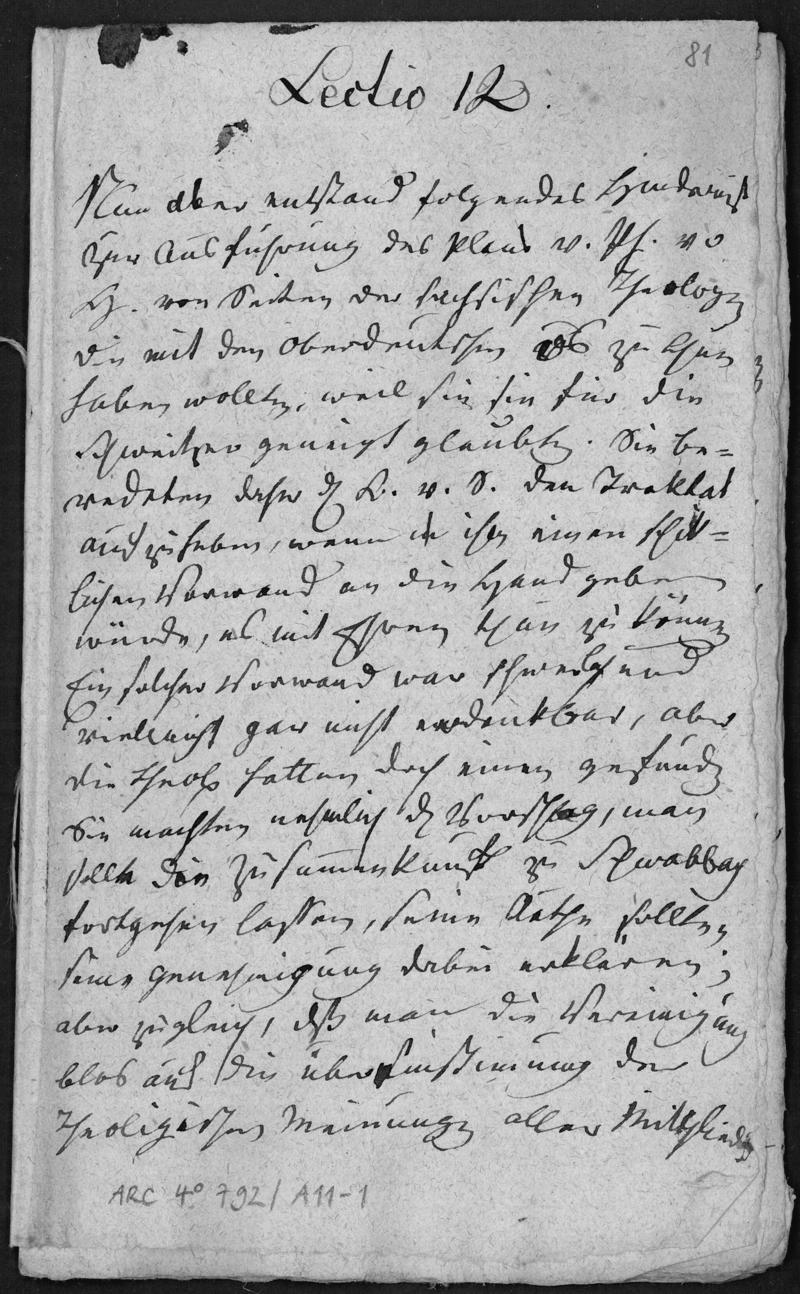 81
Lectio 12.
Nun aber entstand folgendes Hinderniß
zur Ausführung des Plans v. Ph. vo
H. von Seiten der sächsischen Theologen
die mit den Oberdeutschen zu thun
haben wollten, weil sie sie für die
Schweitzer geneigt glaubten. Sie be=
redeten daher d K. v. S. den Traktat
aufzuheben, wenn ihm einen schik=
lichen Vorwand an die Hand geben
würde, es mit Ehren thun zu können
Ein solcher Vorwand war schwer und
vielleicht gar nicht erdenkbar, aber
die Theol hatten doch einen gefunden
Sie machten nehmlich d Vorschlag, man
sollte die Zusammenkunft zu Schwabbach
fortgehen lassen, seine Räthe sollten
seine Genehmigung dabei erklären;
aber zugleich, daß man die Vereinigung
blos auf die übereinstimmung der
theoligischen Meinungen aller Mitglieder
ARC 4° 792/A11-1